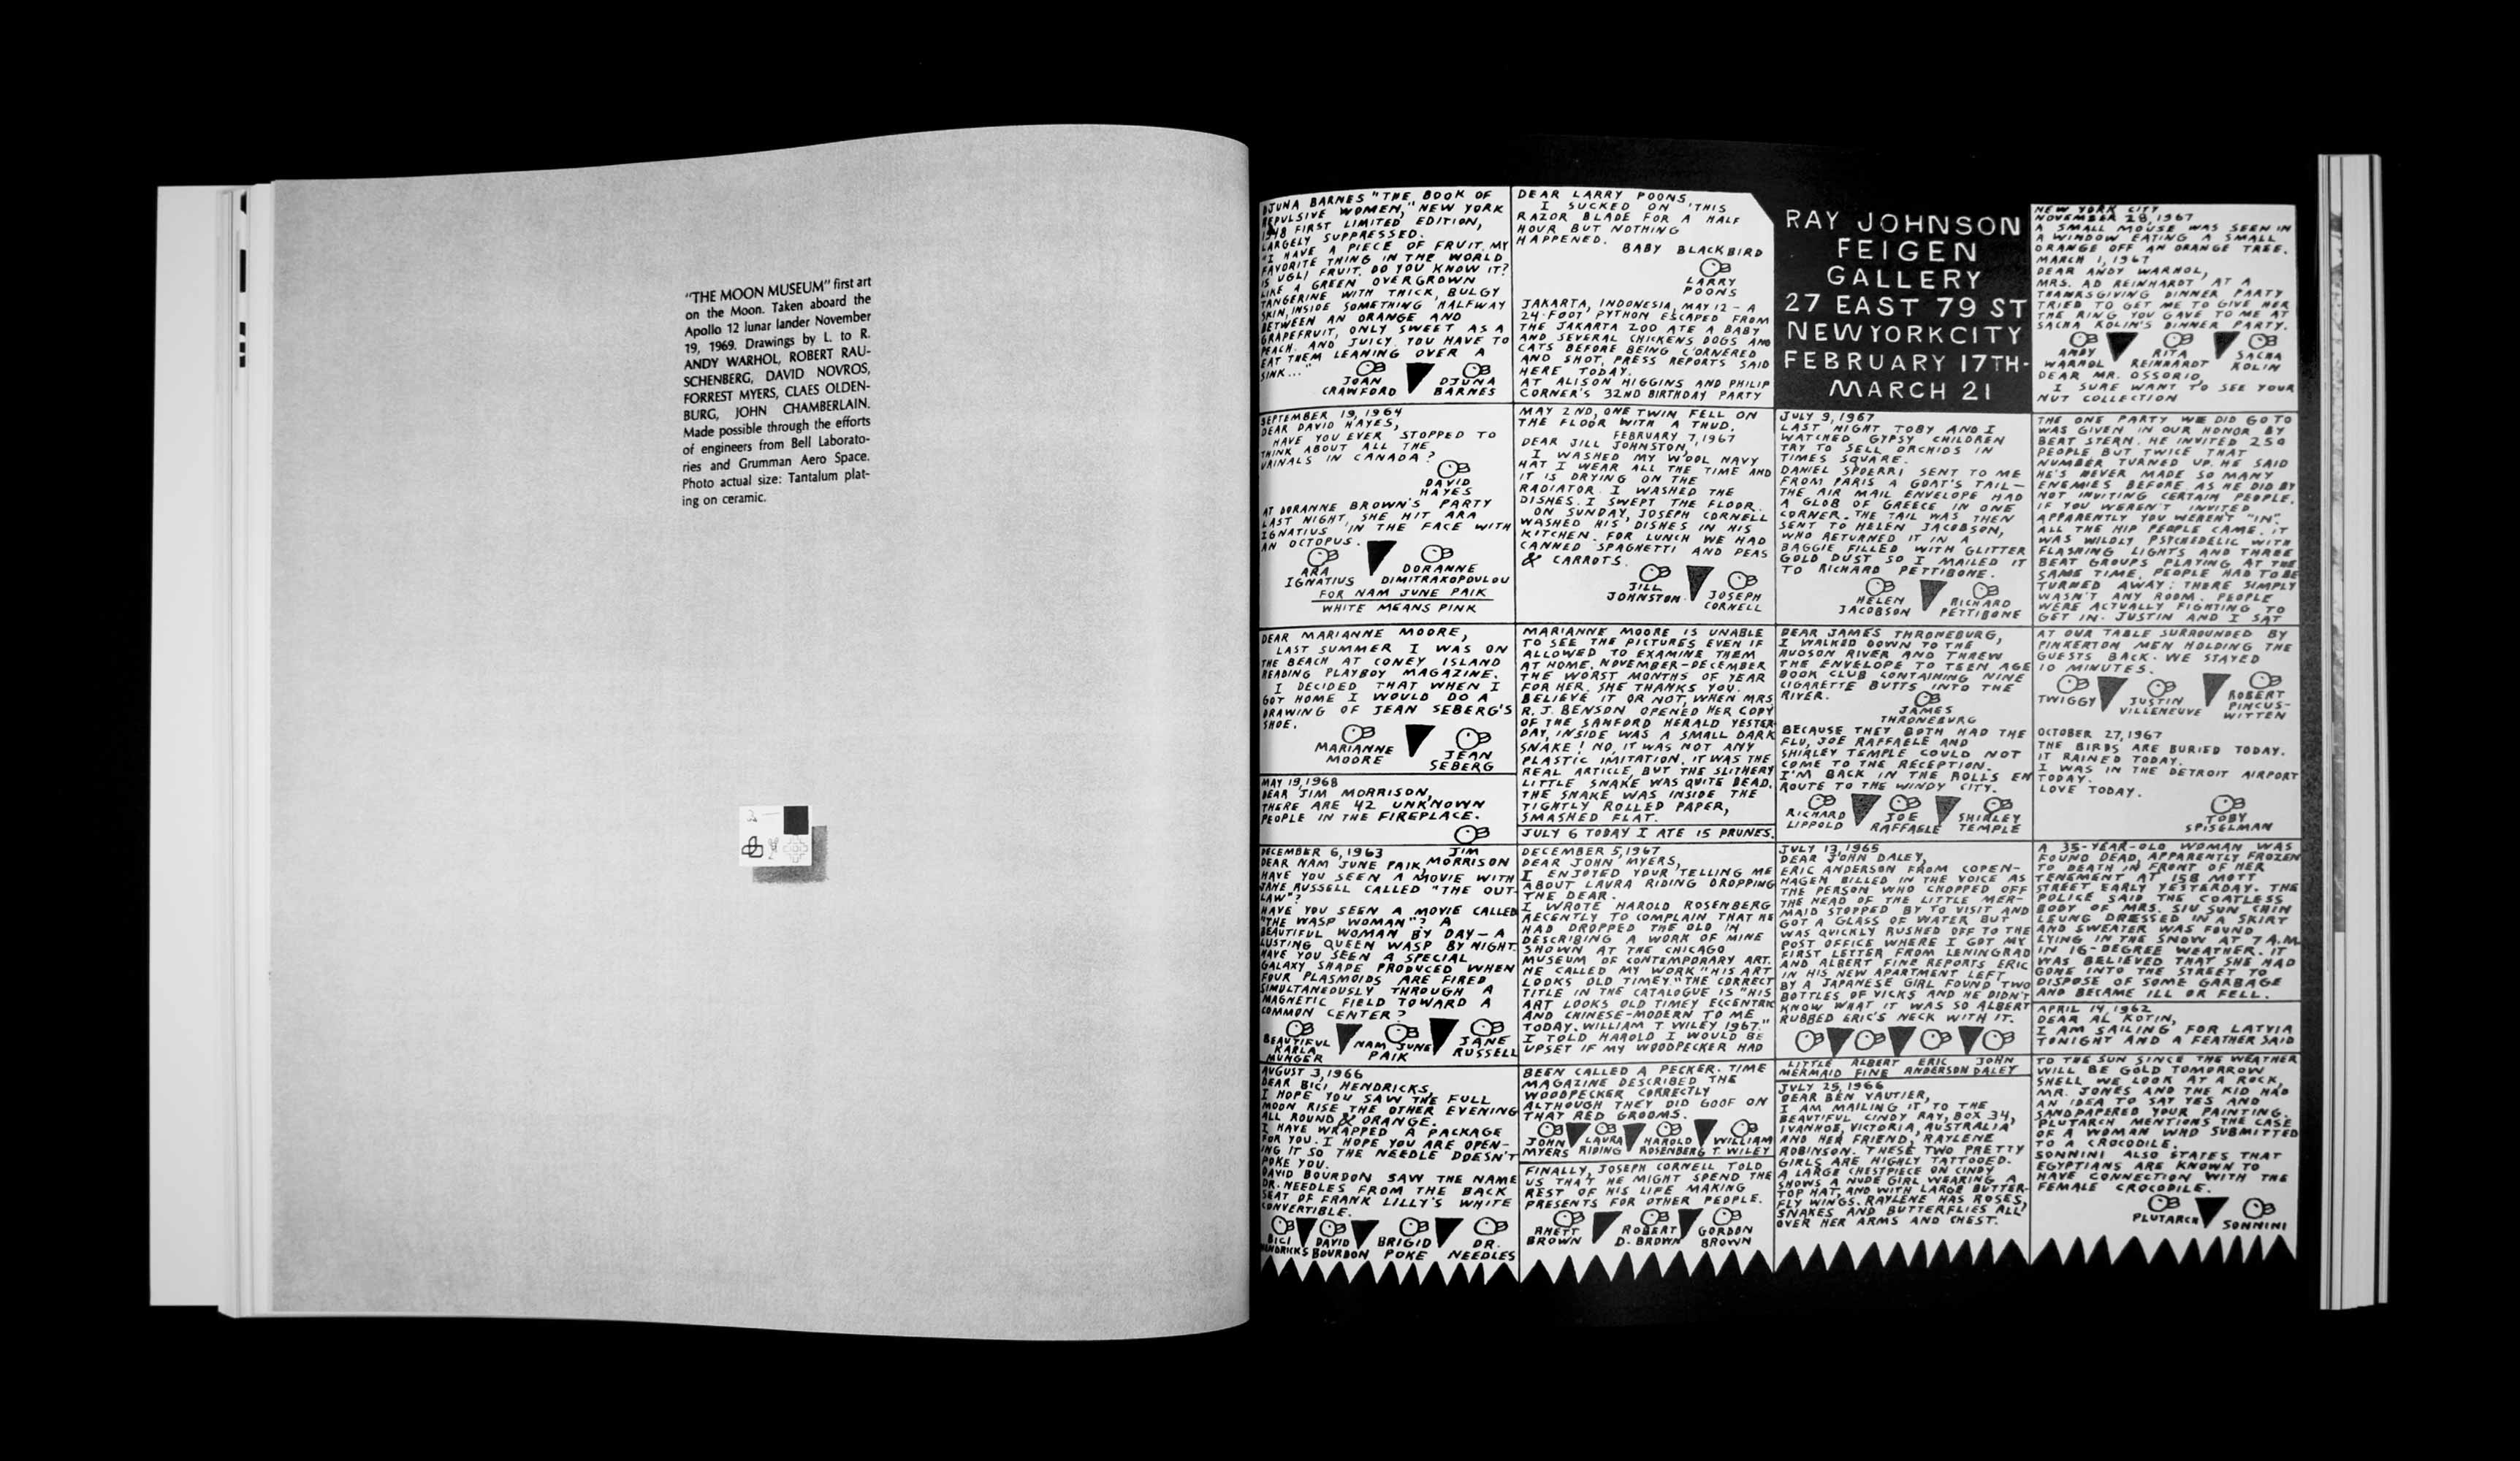 "THE MOON MUSEUM" first art
on the Moon. Taken aboard the
Apollo 12 lunar lander November
19, 1969. Drawings by L. to R.
ANDY WARHOL, ROBERT RAU-
SCHENBERG, DAVID NOVROS,
FORREST MYERS, CLAES OLDEN-
BURG, JOHN CHAMBERLAIN.
Made possible through the efforts
of engineers from Bell Laborato-
ries and Grumman Aero Space.
Photo actual size: Tantalum plat-
ing on ceramic.
DJUNA BARNES "THE BOOK OF
REPULSIVE WOMEN," NEW YORK
1948 FIRST LIMITED EDITION,
LARGELY SUPPRESSED.
"I HAVE A PIECE OF FRUIT. MY
FAVORITE THING IN THE WORLD
IS UGLI FRUIT. DO YOU KNOW IT?
LIKE A GREEN OVERGROWN
TANGERINE WITH THICK, BULGY
SKIN, INSIDE SOMETHING HALFWAY
BETWEEN AN ORANGE AND
GRAPEFRUIT, ONLY SWEET AS A
PEACH. AND JUICY. YOU HAVE TO
EAT THEM LEANING OVER A
SINK..."
JOAN CRAWFORD
DJUNA BARNES
SEPTEMBER 19, 1964
DEAR DAVID HAYES,
HAVE YOU EVER STOPPED TO
THINK ABOUT ALL THE
URINALS IN CANADA?
DAVID
HAYES
AT DORANNE BROWN'S PARTY
LAST NIGHT, SHE HIT ARA
IGNATIUS IN THE FACE WITH
AN OCTOPUS.
ARA IGNATIUS
DORANNE DIMITRAKOPOULOU
FOR NAM JUNE PAIK
WHITE MEANS PINK
DEAR MARIANNE MOORE,
LAST SUMMER I WAS ON
THE BEACH AT CONEY ISLAND
READING PLAYBOY MAGAZINE.
I DECIDED THAT WHEN I
GOT HOME I WOULD DO A
DRAWING OF JEAN SEBERG'S
SHOE.
MARIANNE MOORE
JEAN SEBERG
MAY 19, 1968
DEAR JIM MORRISON,
THERE ARE 42 UNKNOWN
PEOPLE IN THE FIREPLACE.
JIM
MORRISON
DECEMBER 6, 1963
DEAR NAM JUNE PAIK,
HAVE YOU SEEN A MOVIE WITH
JANE RUSSELL CALLED "THE OUT-
LAW"?
HAVE YOU SEEN A MOVIE CALLED
"THE WASP WOMAN"? A
BEAUTIFUL WOMAN BY DAY – A
LUSTING QUEEN WASP BY NIGHT.
HAVE YOU SEEN A SPECIAL
GALAXY SHAPE PRODUCED WHEN
FOUR PLASMOIDS ARE FIRED
SIMULTANEOUSLY THROUGH A
MAGNETIC FIELD TOWARD A
COMMON CENTER?
BEAUTIFUL KARLA MUNGER
NAM JUNE PAIK
JANE RUSSELL
AUGUST 3, 1966
DEAR BICI HENDRICKS,
I HOPE YOU SAW THE FULL
MOON RISE THE OTHER EVENING
ALL ROUND & ORANGE.
I HAVE WRAPPED A PACKAGE
FOR YOU. I HOPE YOU ARE OPEN-
ING IT SO THE NEEDLE DOESN'T
POKE YOU.
DAVID BOURDON SAW THE NAME
DR. NEEDLES FROM THE BACK
SEAT OF FRANK LILLY'S WHITE
CONVERTIBLE.
BICI HENDRICKS
DAVID BOURDON
BRIGID POKE
DR. NEEDLES
DEAR LARRY POONS,
I SUCKED ON THIS
RAZOR BLADE FOR A HALF
HOUR BUT NOTHING
HAPPENED.
BABY BLACKBIRD
LARRY
POONS
JAKARTA, INDONESIA, MAY 12 – A
24-FOOT PYTHON ESCAPED FROM
THE JAKARTA ZOO ATE A BABY
AND SEVERAL CHICKENS DOGS AND
CATS BEFORE BEING CORNERED
AND SHOT, PRESS REPORTS SAID
HERE TODAY.
AT ALISON HIGGINS AND PHILIP
CORNER'S 32ND BIRTHDAY PARTY
MAY 2ND, ONE TWIN FELL ON
THE FLOOR WITH A THUD.
FEBRUARY 7, 1967
DEAR JILL JOHNSTON,
I WASHED MY WOOL NAVY
HAT I WEAR ALL THE TIME AND
IT IS DRYING ON THE
RADIATOR. I WASHED THE
DISHES. I SWEPT THE FLOOR.
ON SUNDAY, JOSEPH CORNELL
WASHED HIS DISHES IN HIS
KITCHEN. FOR LUNCH WE HAD
CANNED SPAGHETTI AND PEAS
& CARROTS.
JILL JOHNSTON
JOSEPH CORNELL
MARIANNE MOORE IS UNABLE
TO SEE THE PICTURES EVEN IF
ALLOWED TO EXAMINE THEM
AT HOME, NOVEMBER–DECEMBER
THE WORST MONTHS OF YEAR
FOR HER. SHE THANKS YOU.
BELIEVE IT OR NOT, WHEN MRS.
R. J. BENSON OPENED HER COPY
OF THE SANFORD HERALD YESTER
DAY, INSIDE WAS A SMALL DARK
SNAKE! NO, IT WAS NOT ANY
PLASTIC IMITATION. IT WAS THE
REAL ARTICLE, BUT THE SLITHERY
LITTLE SNAKE WAS QUITE DEAD.
THE SNAKE WAS INSIDE THE
TIGHTLY ROLLED PAPER,
SMASHED FLAT.
JULY 6 TODAY I ATE 15 PRUNES.
DECEMBER 5, 1967
DEAR JOHN MYERS,
I ENJOYED YOUR TELLING ME
ABOUT LAURA RIDING DROPPING
THE DEAR.
I WROTE HAROLD ROSENBERG
RECENTLY TO COMPLAIN THAT HE
HAD DROPPED THE OLD IN
DESCRIBING A WORK OF MINE
SHOWN AT THE CHICAGO
MUSEUM OF CONTEMPORARY ART.
HE CALLED MY WORK "HIS ART
LOOKS OLD TIMEY." THE CORRECT
TITLE IN THE CATALOGUE IS "HIS
ART LOOKS OLD TIMEY ECCENTRIC
AND CHINESE-MODERN TO ME
TODAY. WILLIAM T. WILEY 1967."
I TOLD HAROLD I WOULD BE
UPSET IF MY WOODPECKER HAD
BEEN CALLED A PECKER. TIME
MAGAZINE DESCRIBED THE
WOODPECKER CORRECTLY
ALTHOUGH THEY DID GOOF ON
THAT RED GROOMS.
JOHN MYERS
LAURA RIDING
HAROLD ROSENBERG
WILLIAM T. WILEY
FINALLY, JOSEPH CORNELL TOLD
US THAT HE MIGHT SPEND THE
REST OF HIS LIFE MAKING
PRESENTS FOR OTHER PEOPLE.
RHETT BROWN
ROBERT D. BROWN
GORDON BROWN
RAY JOHNSON
FEIGEN
GALLERY
27 EAST 79 ST
NEWYORKCITY
FEBRUARY 17TH-
MARCH 21
JULY 9, 1967
LAST NIGHT TOBY AND I
WATCHED GYPSY CHILDREN
TRY TO SELL ORCHIDS IN
TIMES SQUARE.
DANIEL SPOERRI SENT TO ME
FROM PARIS A GOAT'S TAIL—
THE AIR MAIL ENVELOPE HAD
A GLOB OF GREECE IN ONE
CORNER. THE TAIL WAS THEN
SENT TO HELEN JACOBSON,
WHO RETURNED IT IN A
BAGGIE FILLED WITH GLITTER
GOLD DUST SO I MAILED IT
TO RICHARD PETTIBONE.
HELEN JACOBSON
RICHARD PETTIBONE
DEAR JAMES THRONEBURG,
I WALKED DOWN TO THE
HUDSON RIVER AND THREW
THE ENVELOPE TO TEEN AGE
BOOK CLUB CONTAINING NINE
CIGARETTE BUTTS INTO THE
RIVER.
JAMES
THRONEBURG
BECAUSE THEY BOTH HAD THE
FLU, JOE RAFFAELE AND
SHIRLEY TEMPLE COULD NOT
COME TO THE RECEPTION.
I'M BACK IN THE ROLLS EN
ROUTE TO THE WINDY CITY.
RICHARD LIPPOLD
JOE RAFFAELE
SHIRLEY TEMPLE
JULY 13, 1965
DEAR JOHN DALEY,
ERIC ANDERSON FROM COPEN-
HAGEN BILLED IN THE VOICE AS
THE PERSON WHO CHOPPED OFF
THE HEAD OF THE LITTLE MER-
MAID STOPPED BY TO VISIT AND
GOT A GLASS OF WATER BUT
WAS QUICKLY RUSHED OFF TO THE
POST OFFICE WHERE I GOT MY
FIRST LETTER FROM LENINGRAD
AND ALBERT FINE REPORTS ERIC
IN HIS NEW APARTMENT LEFT
BY A JAPANESE GIRL FOUND TWO
BOTTLES OF VICKS AND HE DIDN'T
KNOW WHAT IT WAS SO ALBERT
RUBBED ERIC'S NECK WITH IT.
LITTLE MERMAID
ALBERT FINE
ERIC ANDERSON
JOHN DALEY
JULY 25, 1966
DEAR BEN VAUTIER,
I AM MAILING IT TO THE
BEAUTIFUL CINDY RAY, BOX 34,
IVANHOE, VICTORIA, AUSTRALIA
AND HER FRIEND, RAYLENE
ROBINSON. THESE TWO PRETTY
GIRLS ARE HIGHLY TATTOOED.
A LARGE CHESTPIECE ON CINDY
SHOWS A NUDE GIRL WEARING A
TOP HAT, AND WITH LARGE BUTTER-
FLY WINGS. RAYLENE HAS ROSES,
SNAKES AND BUTTERFLIES ALL
OVER HER ARMS AND CHEST.
NEW YORK CITY
NOVEMBER 28, 1967
A SMALL MOUSE WAS SEEN IN
A WINDOW EATING A SMALL
ORANGE OFF AN ORANGE TREE.
MARCH 1, 1967
DEAR ANDY WARHOL,
MRS. AD REINHARDT AT A
THANKSGIVING DINNER PARTY
TRIED TO GET ME TO GIVE HER
THE RING YOU GAVE TO ME AT
SACHA KOLIN'S DINNER PARTY.
ANDY WARHOL
RITA REINHARDT
SACHA KOLIN
DEAR MR. OSSORIO,
I SURE WANT TO SEE YOUR
NUT COLLECTION
THE ONE PARTY WE DID GO TO
WAS GIVEN IN OUR HONOR BY
BERT STERN. HE INVITED 250
PEOPLE BUT TWICE THAT
NUMBER TURNED UP. HE SAID
HE'S NEVER MADE SO MANY
ENEMIES BEFORE AS HE DID BY
NOT INVITING CERTAIN PEOPLE.
IF YOU WEREN'T INVITED
APPARENTLY YOU WEREN'T "IN".
ALL THE HIP PEOPLE CAME. IT
WAS WILDLY PSYCHEDELIC WITH
FLASHING LIGHTS AND THREE
BEAT GROUPS PLAYING AT THE
SAME TIME. PEOPLE HAD TO BE
TURNED AWAY: THERE SIMPLY
WASN'T ANY ROOM. PEOPLE
WERE ACTUALLY FIGHTING TO
GET IN. JUSTIN AND I SAT
AT OUR TABLE SURROUNDED BY
PINKERTON MEN HOLDING THE
GUESTS BACK. WE STAYED
10 MINUTES.
TWIGGY
JUSTIN VILLENEUVE
ROBERT PINCUS-WITTEN
OCTOBER 27, 1967
THE BIRDS ARE BURIED TODAY.
IT RAINED TODAY.
I WAS IN THE DETROIT AIRPORT
TODAY.
LOVE TODAY.
TOBY
SPISELMAN
A 35-YEAR-OLD WOMAN WAS
FOUND DEAD, APPARENTLY FROZEN
TO DEATH IN FRONT OF HER
TENEMENT AT 158 MOTT
STREET EARLY YESTERDAY. THE
POLICE SAID THE COATLESS
BODY OF MRS. SIU SUN CHIN
LEUNG DRESSED IN A SKIRT
AND SWEATER WAS FOUND
LYING IN THE SNOW AT 7 A.M.
IN 16-DEGREE WEATHER. IT
WAS BELIEVED THAT SHE HAD
GONE INTO THE STREET TO
DISPOSE OF SOME GARBAGE
AND BECAME ILL OR FELL.
APRIL 14, 1962
DEAR AL KOTIN,
I AM SAILING FOR LATVIA
TONIGHT AND A FEATHER SAID
TO THE SUN SINCE THE WEATHER
WILL BE GOLD TOMORROW
SHELL WE LOOK AT A ROCK,
MR. JONES AND THE KID HAD
AN IDEA TO SAT YES AND
SANDPAPERED YOUR PAINTING.
PLUTARCH MENTIONS THE CASE
OF A WOMAN WHO SUBMITTED
TO A CROCODILE.
SONNINI ALSO STATES THAT
EGYPTIANS ARE KNOWN TO
HAVE CONNECTION WITH THE
FEMALE CROCODILE.
PLUTARCH
SONNINI